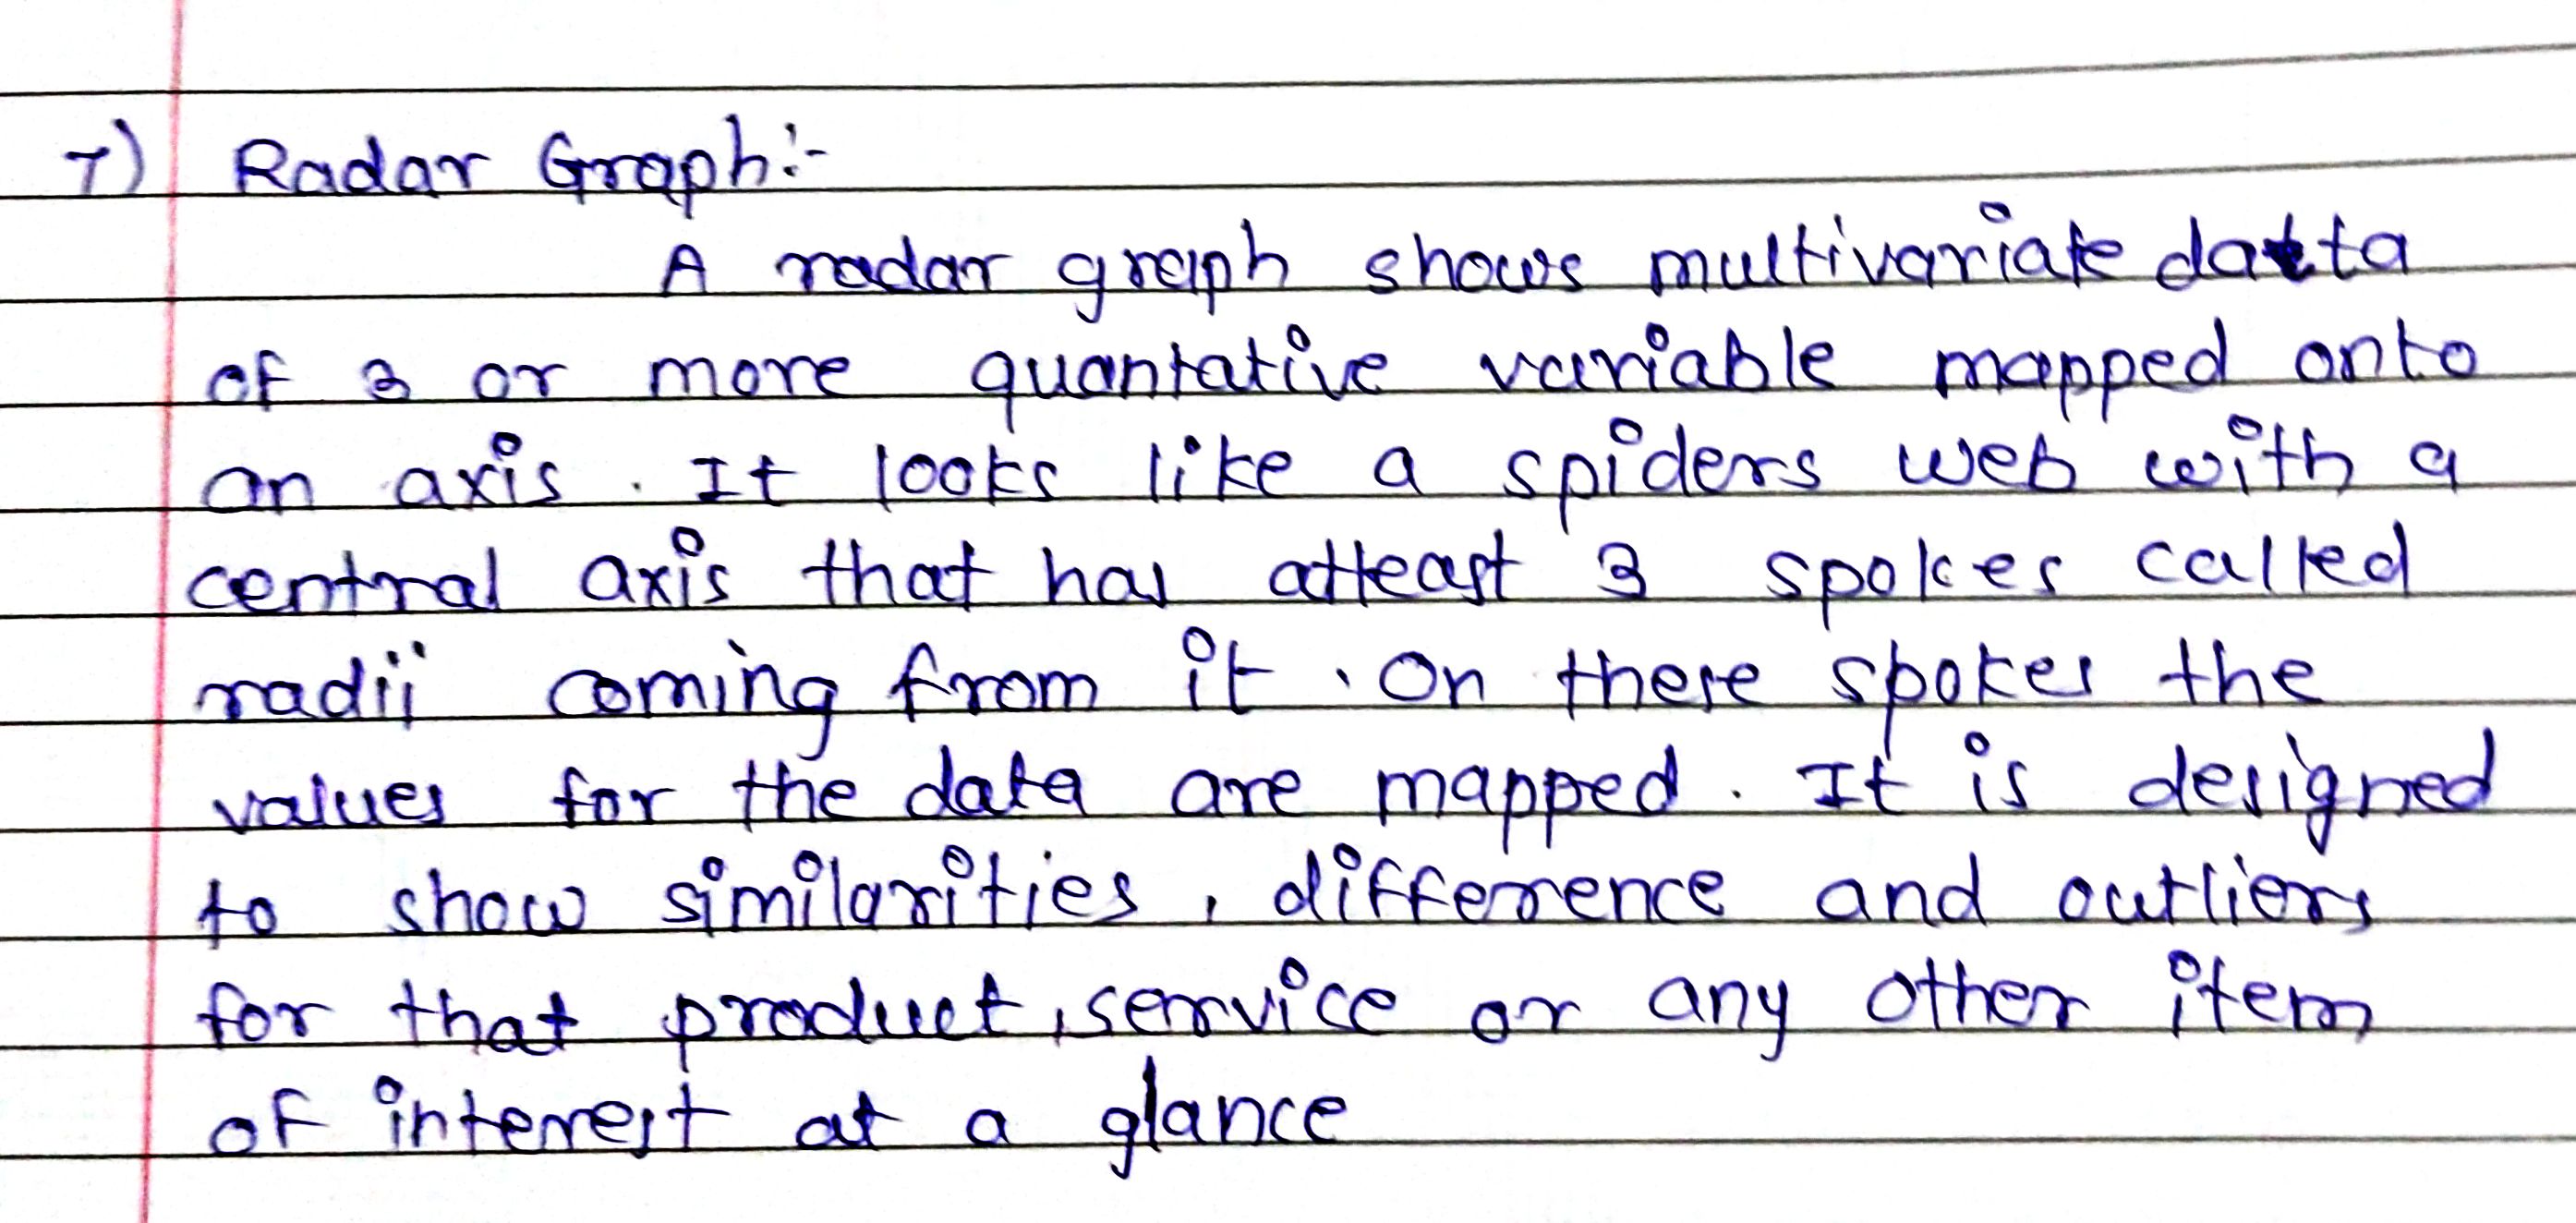 7) Radar Graph:-
A radar graph shows multivariate data
of 3 or more quantative variable mapped onto
an axis. It looks like a spiders web with a
central axis that has atleast 3 spokes called
radii coming from it. On these spokes the
values for the data are mapped. It is designed
to show similarities, difference and outliers
for that product, service or any other item
of interest at a glance